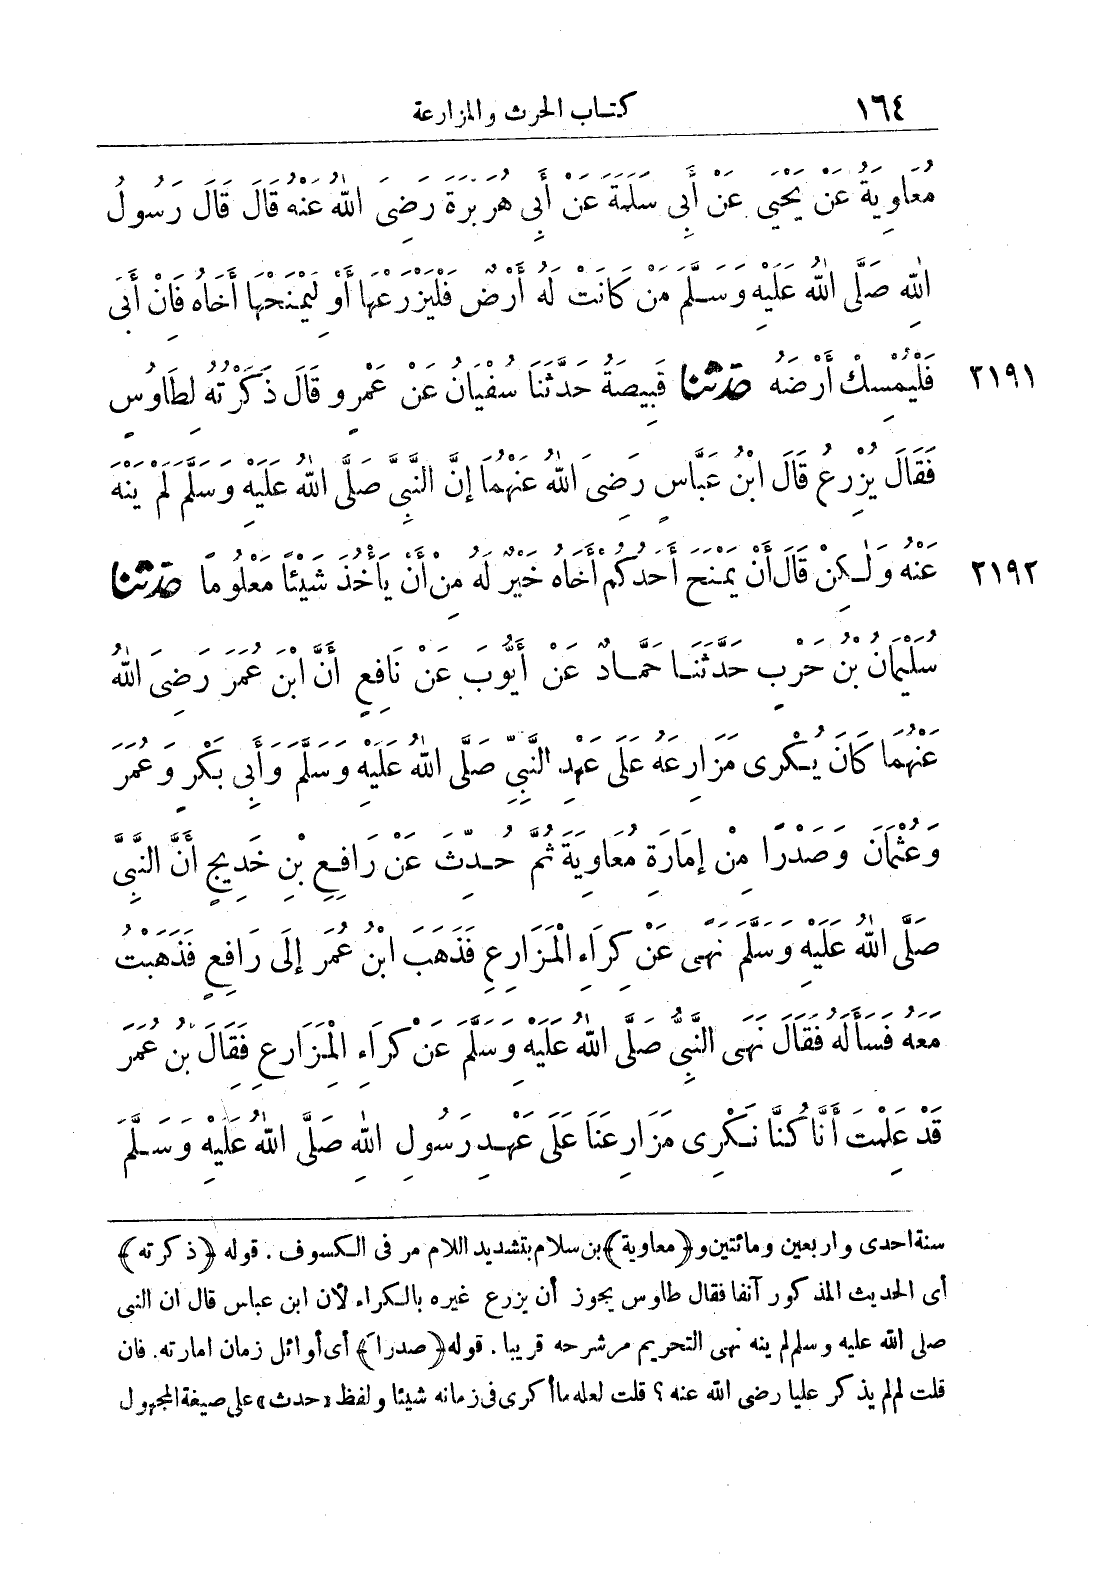 ١٦٤ كتاب الحرث والمزارعة
مُعَاوِيَةُ عَنْ يَحْيَى عَنْ أَبِي سَلَمَةَ عَنْ أَبِي هُرَيْرَةَ رَضِيَ اللهُ عَنْهُ قَالَ قَالَ رَسُولُ
اللهِ صَلَّى اللهُ عَلَيْهِ وَسَلَّمَ مَنْ كَانَتْ لَهُ أَرْضٌ فَلْيَزْرَعْهَا أَوْ لِيَمْنَحْهَا أَخَاهُ فَإِنْ أَبَى
فَلْيُمْسِكْ أَرْضَهُ حدثنا قَبِيصَةُ حَدَّثَنَا سُفْيَانُ عَنْ عَمْرٍو قَالَ ذَكَرْتُهُ لِطَاوُسٍ ٢١٩١
فَقَالَ يُزْرِعُ قَالَ ابْنُ عَبَّاسٍ رَضِيَ اللهُ عَنْهُمَا إِنَّ النَّبِيَّ صَلَّى اللهُ عَلَيْهِ وَسَلَّمَ لَمْ يَنْهَ
عَنْهُ وَلٰكِنْ قَالَ أَنْ يَمْنَحَ أَحَدُكُمْ أَخَاهُ خَيْرٌ لَهُ مِنْ أَنْ يَأْخُذَ شَيْئًا مَعْلُومًا حدثنا ٢١٩٢
سُلَيْمَانُ بْنُ حَرْبٍ حَدَّثَنَا حَمَّادٌ عَنْ أَيُّوبَ عَنْ نَافِعٍ أَنَّ ابْنَ عُمَرَ رَضِيَ اللهُ
عَنْهُمَا كَانَ يُكْرِي مَزَارِعَهُ عَلَى عَهْدِ النَّبِيِّ صَلَّى اللهُ عَلَيْهِ وَسَلَّمَ وَأَبِي بَكْرٍ وَعُمَرَ
وَعُثْمَانَ وَصَدْرًا مِنْ إِمَارَةِ مُعَاوِيَةَ ثُمَّ حُدِّثَ عَنْ رَافِعِ بْنِ خَدِيجٍ أَنَّ النَّبِيَّ
صَلَّى اللهُ عَلَيْهِ وَسَلَّمَ نَهَى عَنْ كِرَاءِ الْمَزَارِعِ فَذَهَبَ ابْنُ عُمَرَ إِلَى رَافِعٍ فَذَهَبْتُ
مَعَهُ فَسَأَلَهُ فَقَالَ نَهَى النَّبِيُّ صَلَّى اللهُ عَلَيْهِ وَسَلَّمَ عَنْ كِرَاءِ الْمَزَارِعِ فَقَالَ بن عُمَرَ
قَدْ عَلِمْتَ أَنَّا كُنَّا نُكْرِي مَزَارِعَنَا عَلَى عَهْدِ رَسُولِ اللهِ صَلَّى اللهُ عَلَيْهِ وَسَلَّمَ
سنة احدى واربعين ومائتين و﴿معاوية﴾ بن سلام بتشديد اللام مر فى الكسوف . قوله ﴿ذكرته﴾
أى الحديث المذكور آنفا فقال طاوس يجوز أن يزرع غيره بالكراء لأن ابن عباس قال ان النبى
صلى الله عليه وسلم لم ينه نهى التحريم مر شرحه قريبا . قوله ﴿صدرا﴾ أى أوائل زمان امارته. فان
قلت لم لم يذكر عليا رضى الله عنه؟ قلت لعله ما أكرى فى زمانه شيئا ولفظ «حدث» على صيغة المجهول